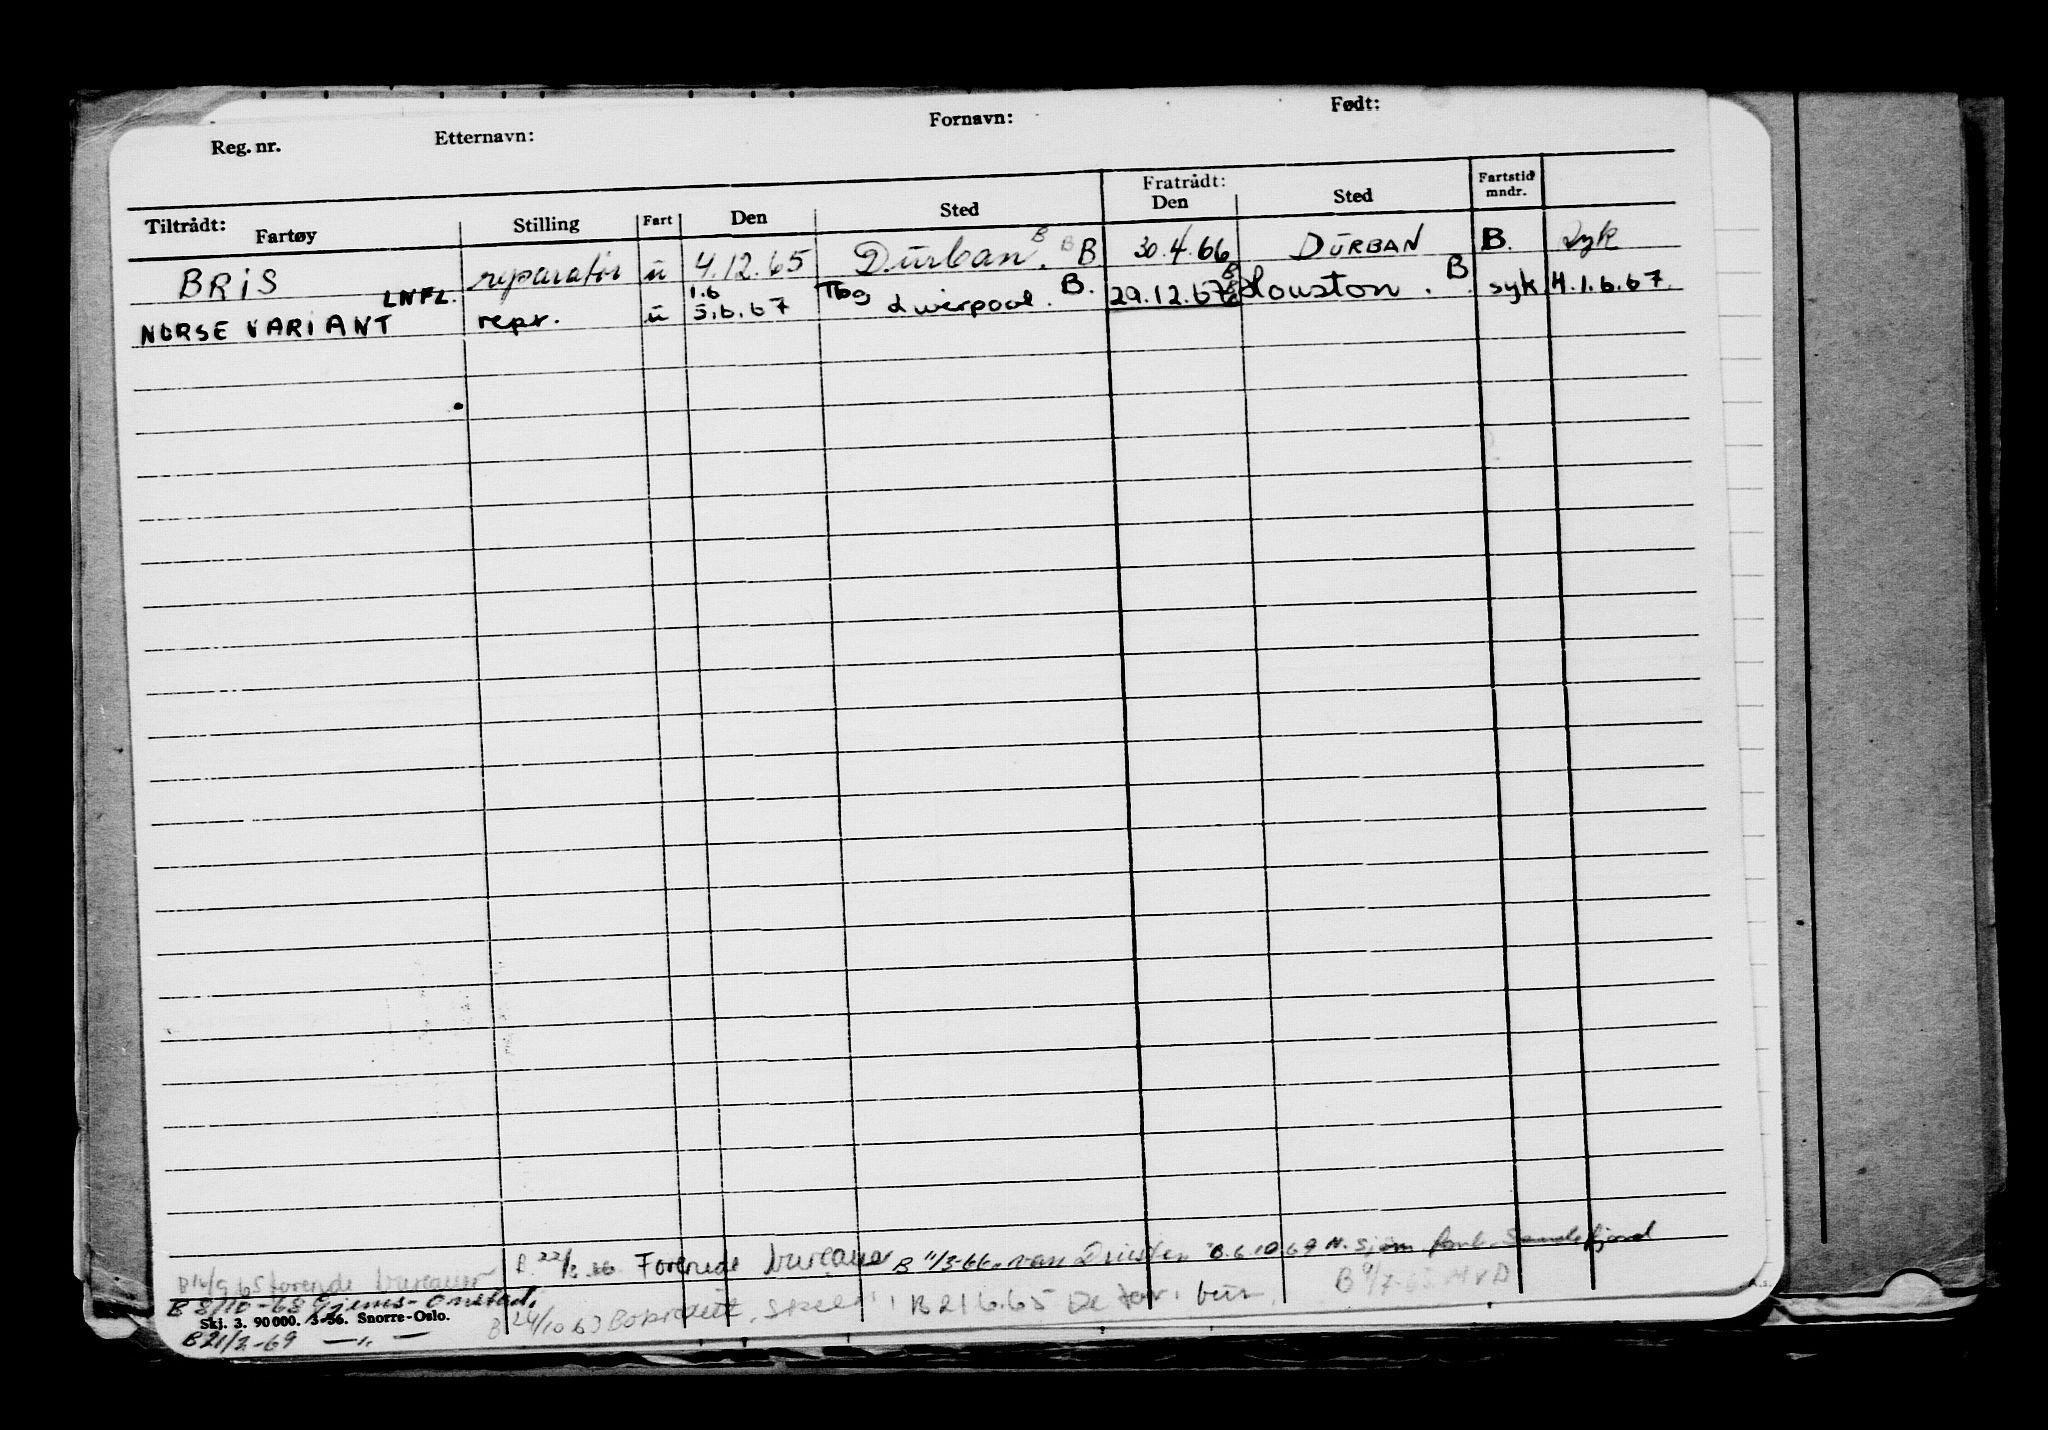 Reg. nr. Etternavn: Fornavn: Født:
Tiltrådt: Fratrådt:
Fartøy Stilling Fart Den Sted Den Sted Fartstid mndr.
BRIS reparatør u 4.12.65 Durban. B B B 30.4.66 DURBAN B. Syk
NORSE VARIANT LNFL. repr. u 1.6 5.6.67 Tbg Liverpool. B. 29.12.67 B Houston. B syk H.1.6.67.
B 22/3.66 Forenede bureauer B 11/3-66 van Driesten B.6.10.69 N. sjøm. Sandefjord
B 14/9 65 forende bureauer
B 8/10-68 Gjems-Onstad.
B 21 6.65 De for. bur. B 9/7-65
Skj. 3. 90 000. 3-56. Snorre-Oslo.
B 21/2-69 — " —